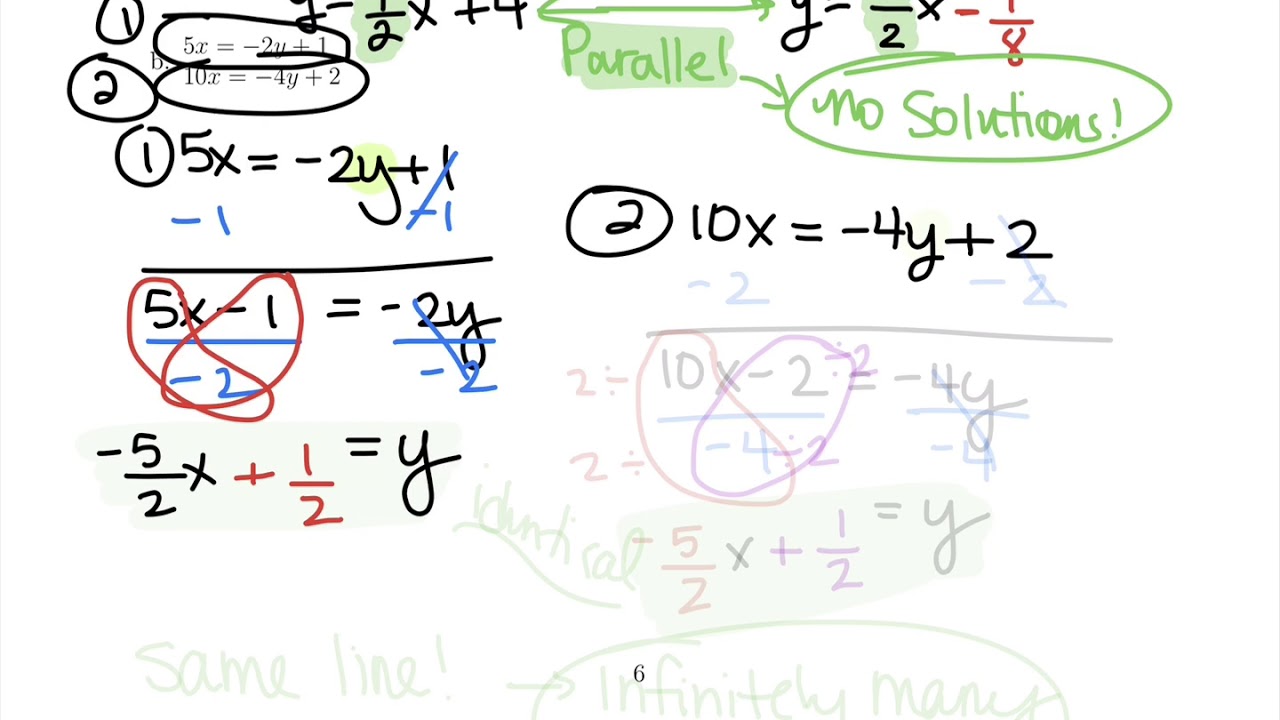 ① y = 1/2 x + 4 y = 1/2 x - 1/8
Parallel
No Solutions!
b. 5x = −2y + 1
② 10x = −4y + 2
① 5x = -2y + 1
-1 -1
5x - 1 = -2y
-2 -2
-5/2 x + 1/2 = y
② 10x = -4y + 2
-2 -2
2÷ 10x - 2 ÷2 = -4y
2÷ -4 ÷2 -4
-5/2 x + 1/2 = y
identical
Same line! → Infinitely many
6